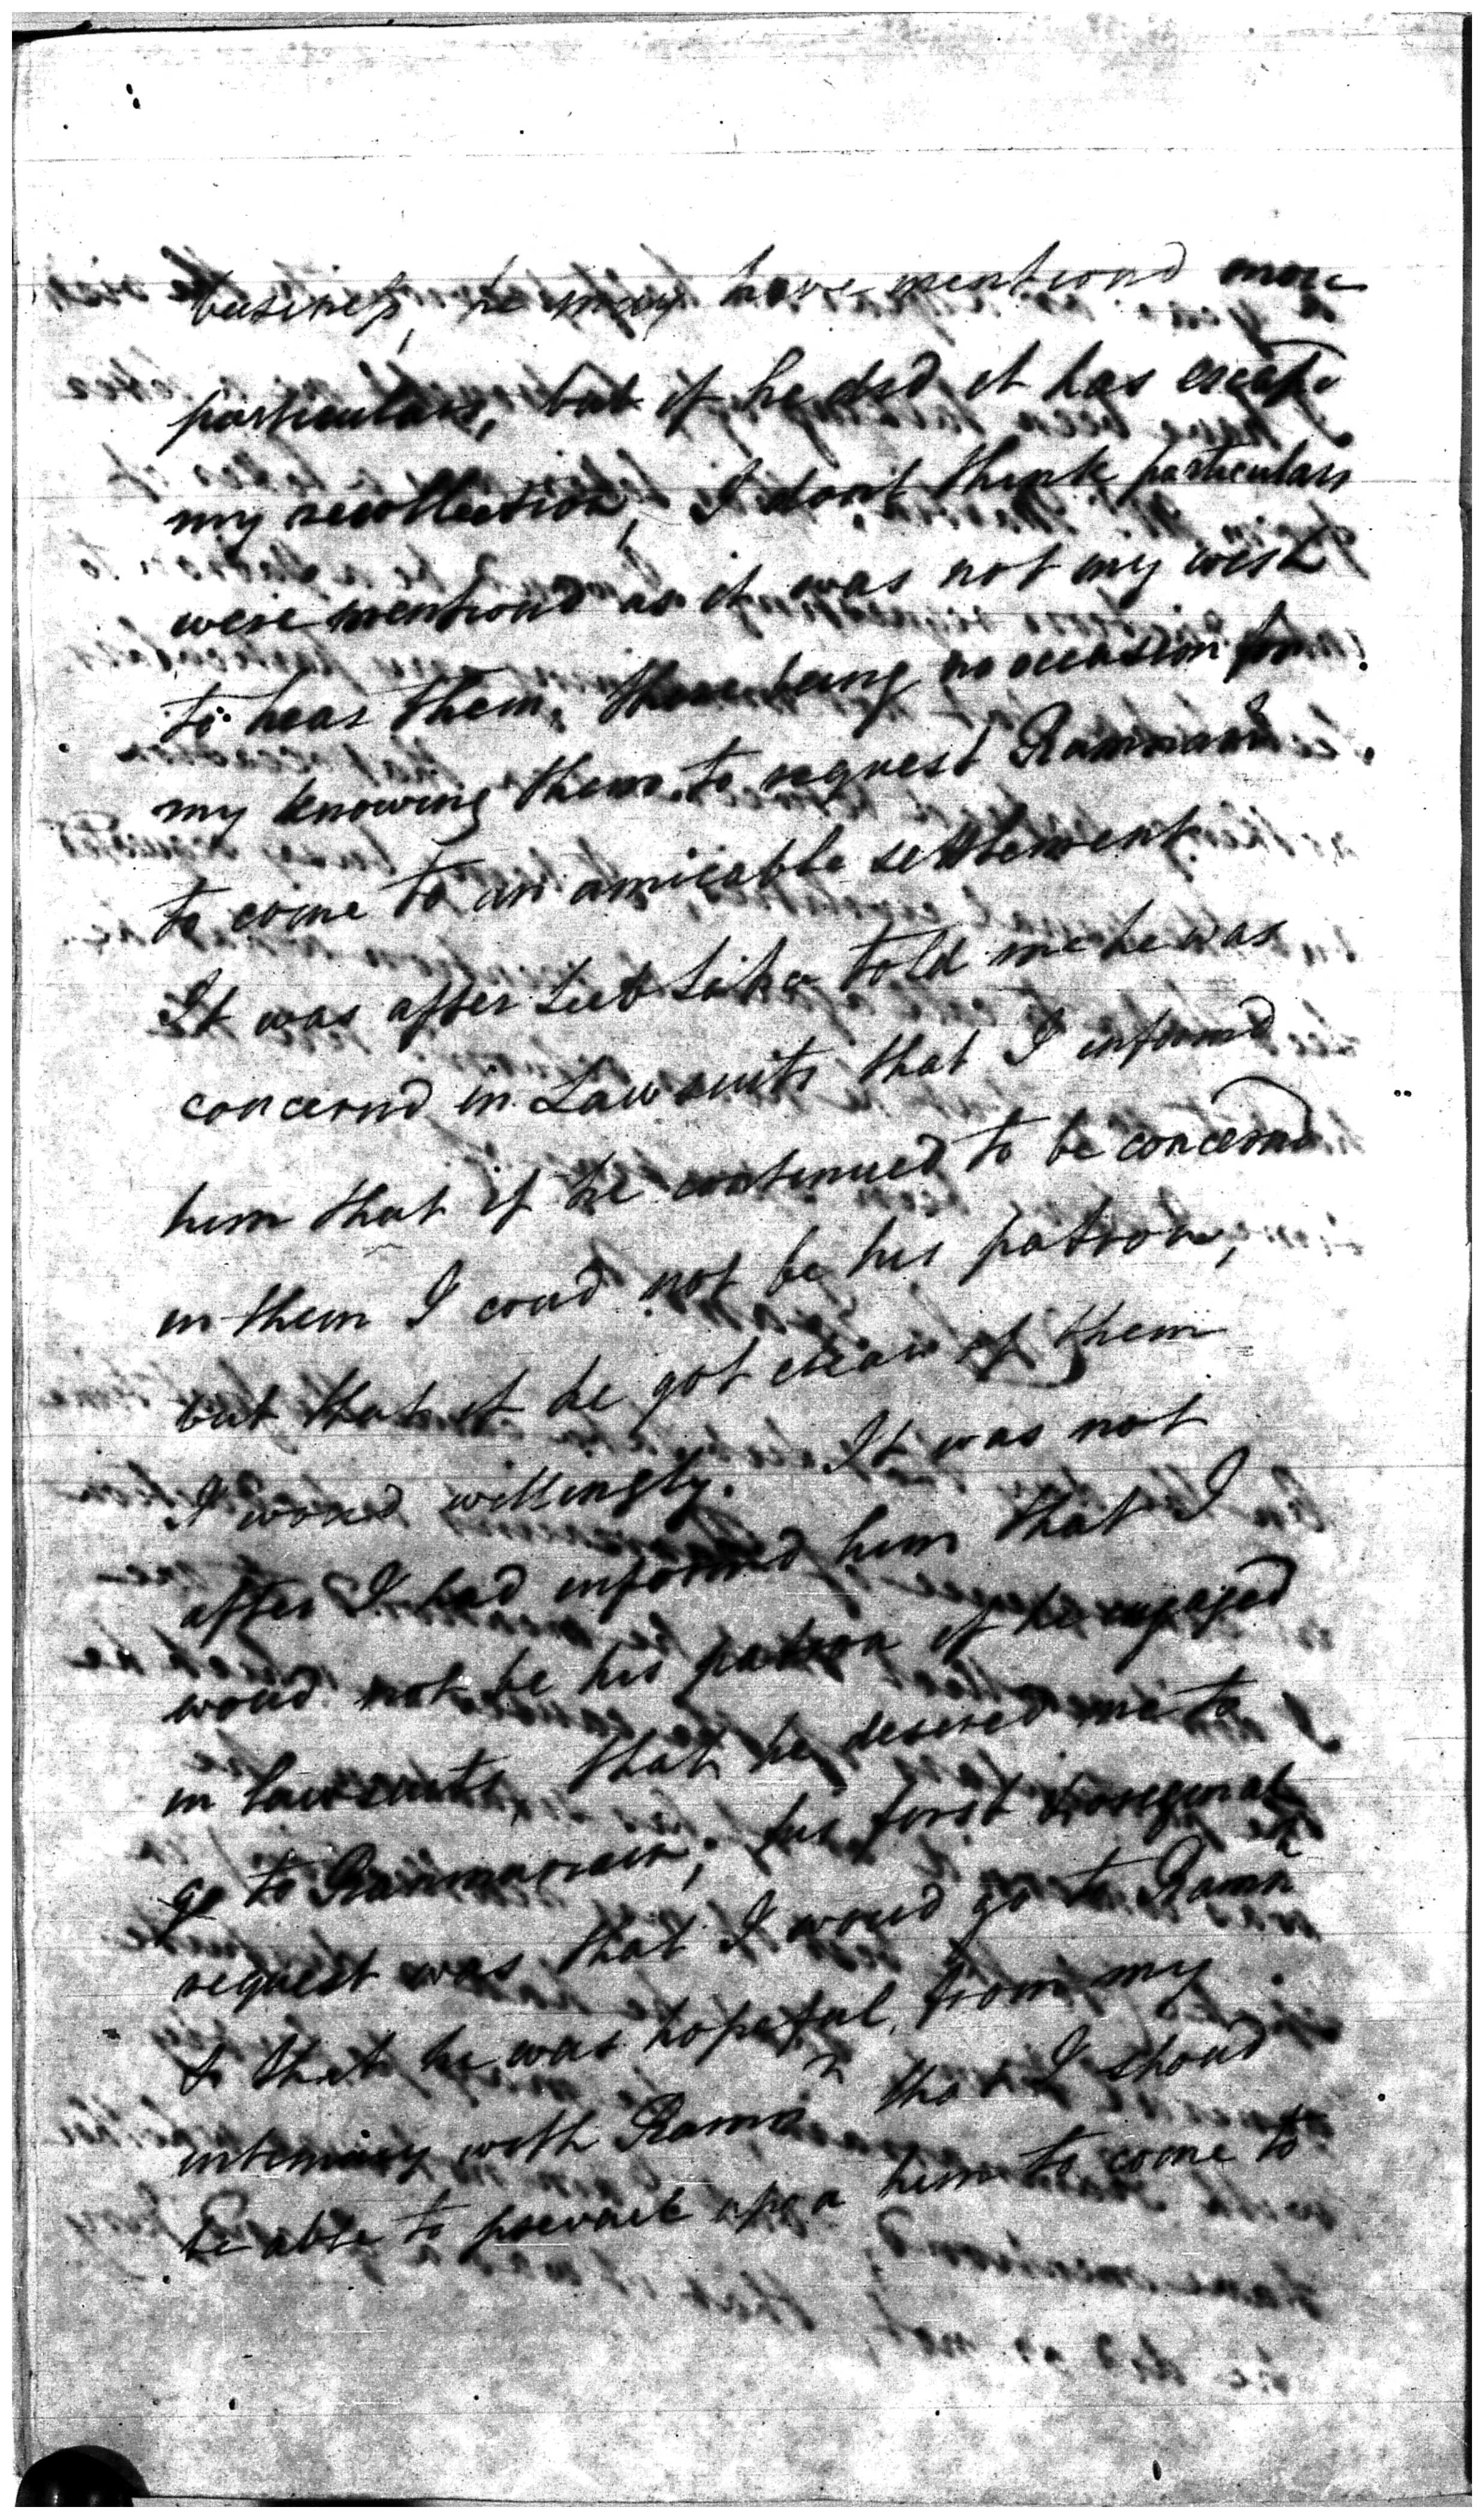 business, he may have mentiond more
particulars, but if he did it has escap'd
my recollection, I don't think particulars
were mentiond as it was not my wish
to hear them, there being no occasion for
my knowing them to request Ramnarain
to come to an amicable settlement
It was after told me he was
concernd in Law suits that I informd
him that if he continued to be concernd
in them I coud not be his patron,
but that if he got clear of them
I woud willingly. It was not
after I had informd him that I
woud not be his patron if he engaged
in lawsuits, that he desired me to
go to Ramnarain, his first
request was that I woud go to Ramn
& that he was hopeful, from my
intimacy with Ramn that I shoud
be able to prevail upon him to come to